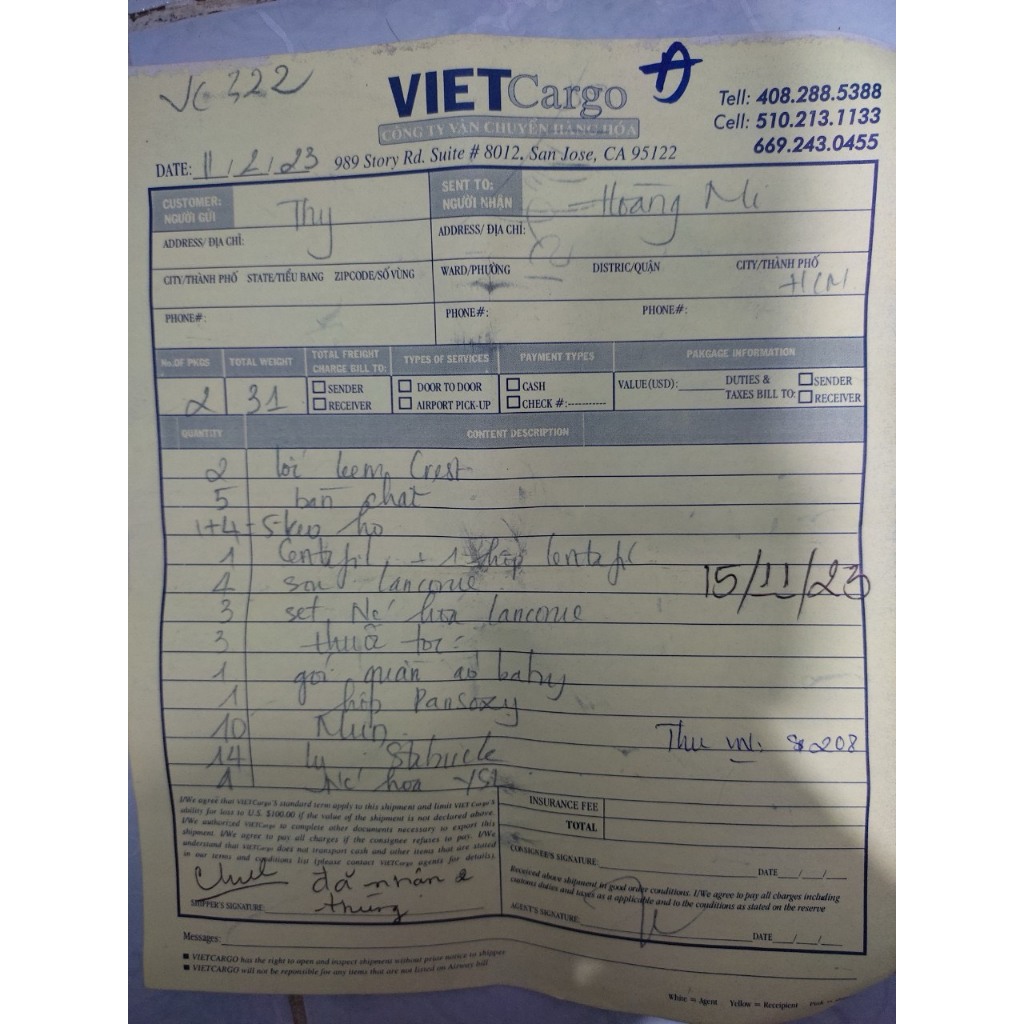 VC 322
VIETCargo
CÔNG TY VẬN CHUYỂN HÀNG HÓA
Tell: 408.288.5388
Cell: 510.213.1133
669.243.0455
DATE: 11/2/23 989 Story Rd. Suite # 8012, San Jose, CA 95122
CUSTOMER: Thy
NGƯỜI GỬI
SENT TO: Hoàng Mi
NGƯỜI NHẬN
ADDRESS/ ĐỊA CHỈ:
ADDRESS/ ĐỊA CHỈ:
CITY/THÀNH PHỐ STATE/TIỂU BANG ZIPCODE/SỐ VÙNG
WARD/PHƯỜNG DISTRIC/QUẬN CITY/THÀNH PHỐ
HCM
PHONE#:
PHONE#: PHONE#:
No.OF PKGS TOTAL WEIGHT TOTAL FREIGHT CHARGE BILL TO: TYPES OF SERVICES PAYMENT TYPES PAKGAGE INFORMATION
2 31
SENDER
RECEIVER
DOOR TO DOOR
AIRPORT PICK-UP
CASH
CHECK #:
VALUE(USD): DUTIES & TAXES BILL TO:
SENDER
RECEIVER
QUANTITY CONTENT DESCRIPTION
2 lốc kem Crest
5 bàn chat
1+4 = 5 kẹo ho
1 Centafil + 1 hộp Centafil
4 son lancome
3 set Nc' hoa lancome
15/11/23
3 thuố
1 gói quần áo baby
1 hộp Panoxy
10 Mụn
Thu VN: \$208
14 ly Stabuck
1 Nc' hoa YSL
I/We agree that VIETCargo'S standard term apply to this shipment and limit VIET Cargo'S
ability for loss to U.S. \$100.00 if the value of the shipment is not declared above.
I/We authorized VIETCargo to complete other documents necessary to export this
shipment. I/We agree to pay all charges if the consignee refuses to pay. I/We
understand that VIETCargo does not transport cash and other items that are stated
in our terms and conditions list (please contact VIETCargo agents for details).
đã nhận 2
thùng
SHIPPER'S SIGNATURE:
INSURANCE FEE
TOTAL
CONSIGNEE'S SIGNATURE:
DATE / /
Received above shipment in good order conditions. I/We agree to pay all charges including
customs duties and taxes as a applicable and to the conditions as stated on the reserve
AGENT'S SIGNATURE:
DATE / /
Messages:
■ VIETCARGO has the right to open and inspect shipment without prior notice to shipper
■ VIETCARGO will not be reponsible for any items that are not listed on Airway bill
White = Agent Yellow = Receipient